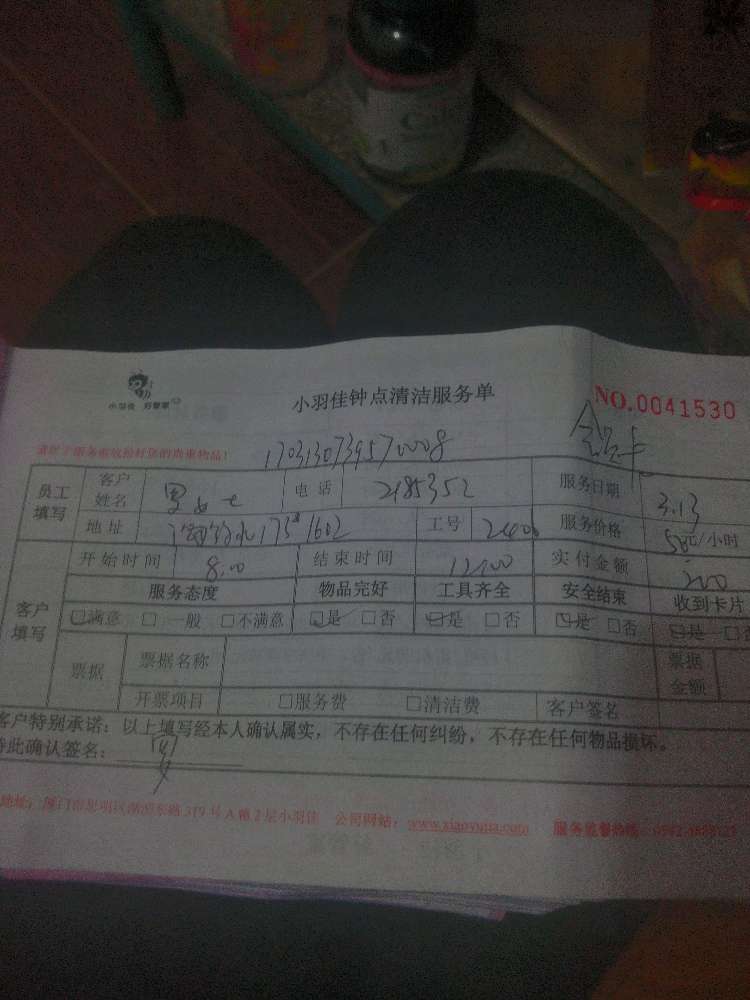 小羽佳 好管家
小羽佳钟点清洁服务单
NO.0041530
请在服务前收拾好您的贵重物品!
1703130739570008
金卡
员工填写 客户姓名 电话 2185352 服务日期 3.13
地址 1602 工号 服务价格 50元/小时
客户填写 开始时间 8:00 结束时间 12:00 实付金额 200
服务态度 物品完好 工具齐全 安全结束 收到卡片
满意 一般 不满意 是 否 是 否 是 否 是
票据 票据名称 票据金额
开票项目 服务费 清洁费 客户签名
客户特别承诺:以上填写经本人确认属实,不存在任何纠纷,不存在任何物品损坏。
特此确认签名:
地址:厦门市思明区湖滨东路319号A幢2层小羽佳 公司网站:www.xiaoyujia.com 服务监督热线: